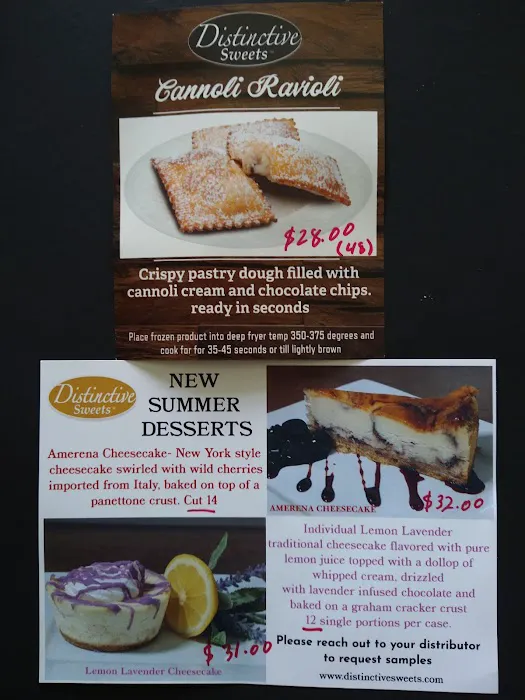 Distinctive
Sweets™
Cannoli Ravioli
$28.00
(48)
Crispy pastry dough filled with
cannoli cream and chocolate chips.
ready in seconds
Place frozen product into deep fryer temp 350-375 degrees and
cook for for 35-45 seconds or till lightly brown
Distinctive
Sweets™
NEW
SUMMER
DESSERTS
Amerena Cheesecake- New York style
cheesecake swirled with wild cherries
imported from Italy, baked on top of a
panettone crust. Cut 14
AMERENA CHEESECAKE
$32.00
Individual Lemon Lavender
traditional cheesecake flavored with pure
lemon juice topped with a dollop of
whipped cream, drizzled
with lavender infused chocolate and
baked on a graham cracker crust
12 single portions per case.
$31.00
Lemon Lavender Cheesecake
Please reach out to your distributor
to request samples
www.distinctivesweets.com